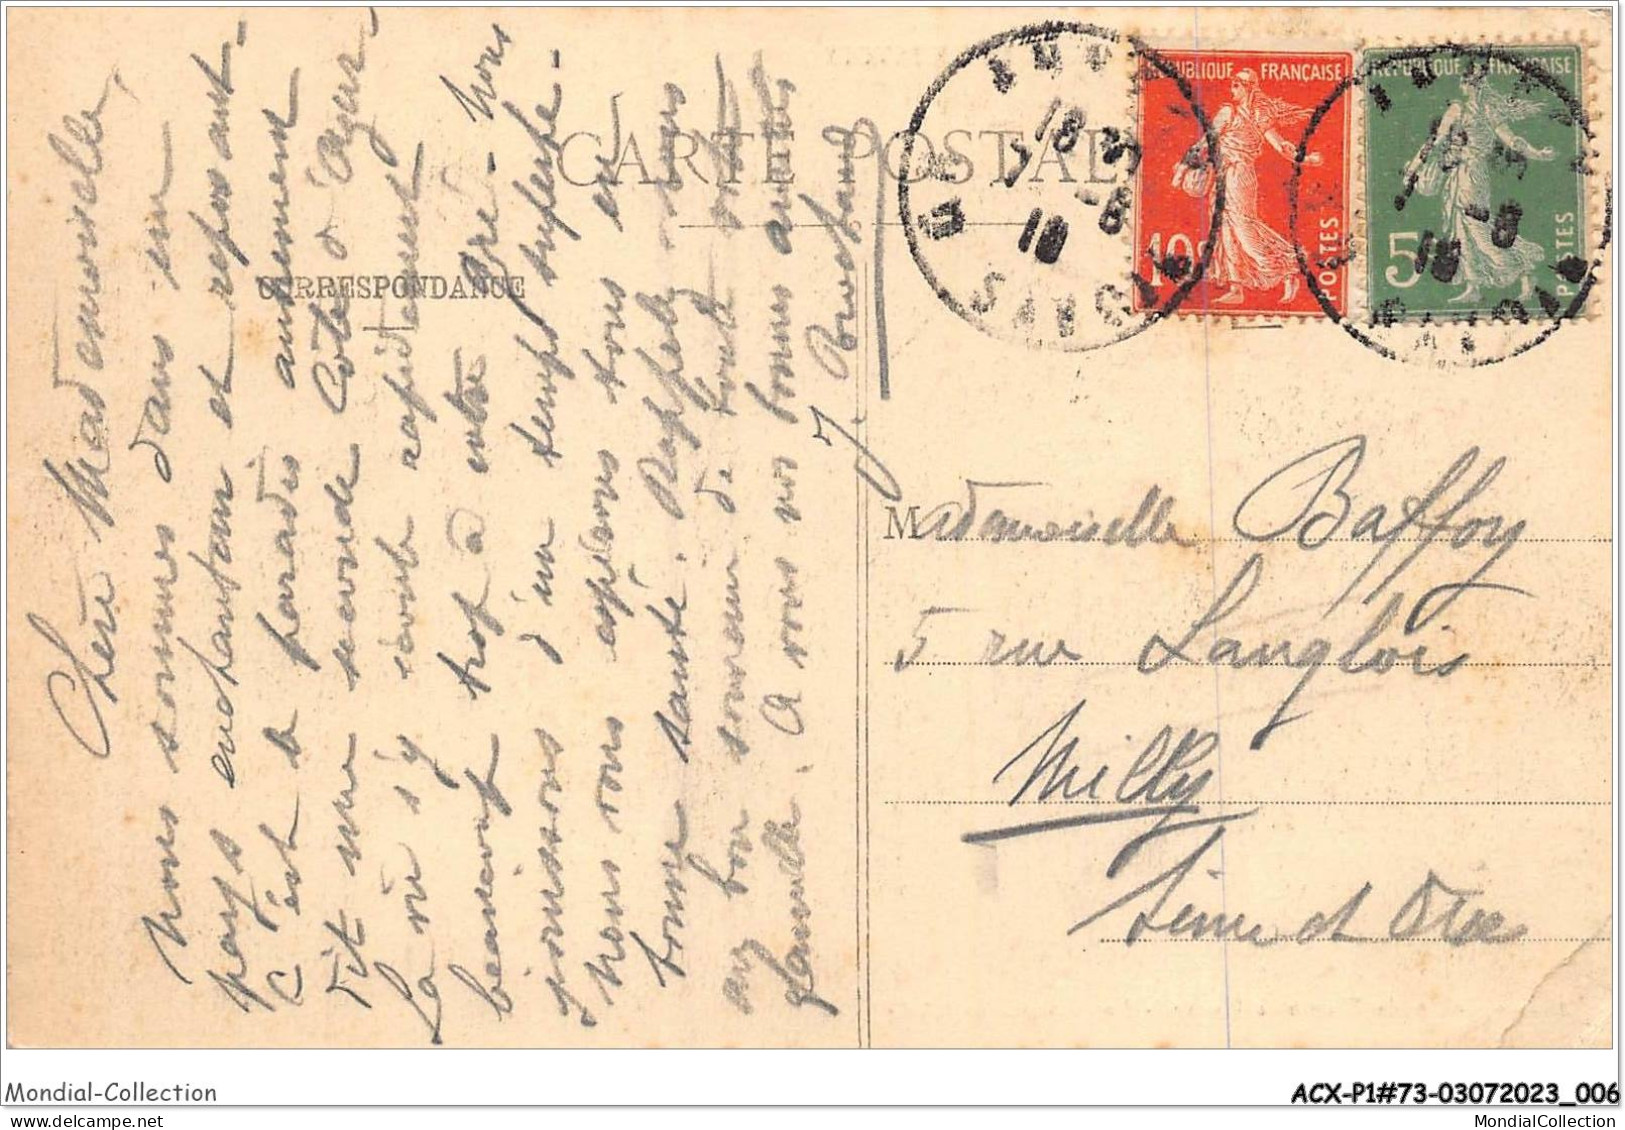 CARTE POSTALE
CORRESPONDANCE
RÉPUBLIQUE FRANÇAISE
10c
POSTES
RÉPUBLIQUE FRANÇAISE
5
POSTES
18
SAVOIE
Chère Mademoiselle,
Nous sommes dans un
pays enchanteur et reposant -
C'est le paradis autrement
dit une seconde Côte d'Azur
La vie s'y écoule rapidement
beaucoup trop à notre gré - Nous
jouissons d'un temps superbe -
Nous vous espérons tous en
bonne santé. Rappelez nous
au bon souvenir de toute votre
famille. A vous nos bonnes amitiés
J. Rochard
Mademoiselle Baffoy
5 rue Langlois
Milly
Seine et Oise
Mondial-Collection
ACX-P1#73-03072023_006
MondialCollection